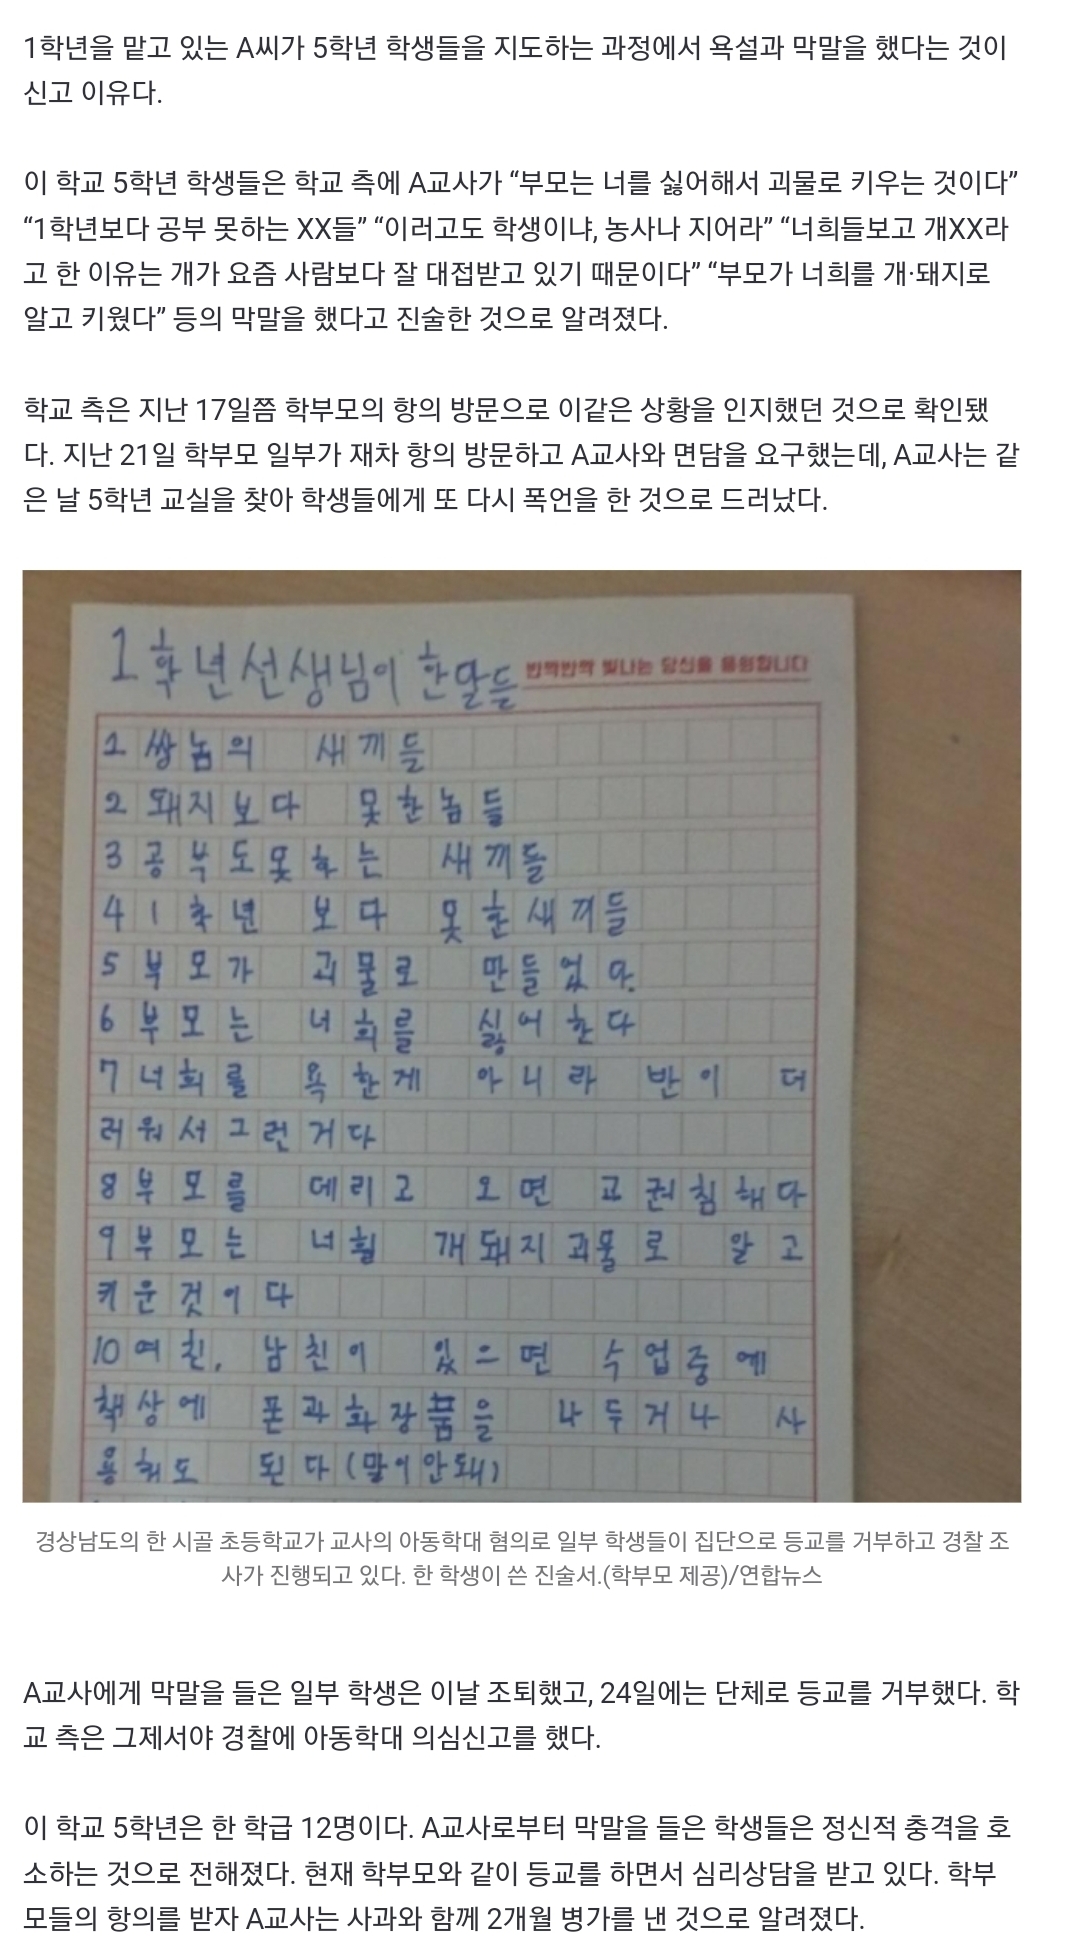 1학년을 맡고 있는 A씨가 5학년 학생들을 지도하는 과정에서 욕설과 막말을 했다는 것이
신고 이유다.
이 학교 5학년 학생들은 학교 측에 A교사가 “부모는 너를 싫어해서 괴물로 키우는 것이다”
“1학년보다 공부 못하는 XX들” “이러고도 학생이냐, 농사나 지어라” “너희들보고 개XX라
고 한 이유는 개가 요즘 사람보다 잘 대접받고 있기 때문이다” “부모가 너희를 개·돼지로
알고 키웠다” 등의 막말을 했다고 진술한 것으로 알려졌다.
학교 측은 지난 17일쯤 학부모의 항의 방문으로 이같은 상황을 인지했던 것으로 확인됐
다. 지난 21일 학부모 일부가 재차 항의 방문하고 A교사와 면담을 요구했는데, A교사는 같
은 날 5학년 교실을 찾아 학생들에게 또 다시 폭언을 한 것으로 드러났다.
1학년선생님이 한말들
반짝반짝 빛나는 당신을 응원합니다
1 쌍놈의 새끼들
2 돼지보다 못한놈들
3 공부도못하는 새끼들
4 1학년 보다 못한새끼들
5 부모가 괴물로 만들었다.
6 부모는 너희를 싫어한다
7 너희를 욕한게 아니라 반이 더
러워서그런거다
8 부모를 데리고 오면 교권침해다
9 부모는 너흴 개돼지괴물로 알고
키운것이다
10 여친, 남친이 있으면 수업중에
책상에 폰과화장품을 나두거나 사
용해도 된다(말이안돼)
경상남도의 한 시골 초등학교가 교사의 아동학대 혐의로 일부 학생들이 집단으로 등교를 거부하고 경찰 조
사가 진행되고 있다. 한 학생이 쓴 진술서.(학부모 제공)/연합뉴스
A교사에게 막말을 들은 일부 학생은 이날 조퇴했고, 24일에는 단체로 등교를 거부했다. 학
교 측은 그제서야 경찰에 아동학대 의심신고를 했다.
이 학교 5학년은 한 학급 12명이다. A교사로부터 막말을 들은 학생들은 정신적 충격을 호
소하는 것으로 전해졌다. 현재 학부모와 같이 등교를 하면서 심리상담을 받고 있다. 학부
모들의 항의를 받자 A교사는 사과와 함께 2개월 병가를 낸 것으로 알려졌다.